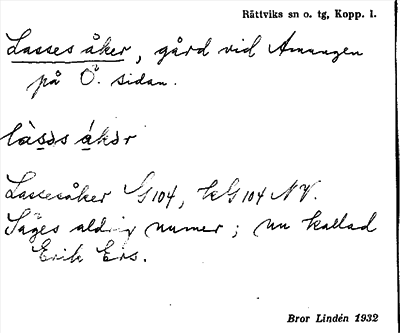 Rättviks sn o. tg, Kopp. l.
Lasses åker, gård vid Amungen
på Ö. sidan.
làsəs ákər
Lassesåker G104, kG104 NV.
Säges aldrig numer; nu kallad
Erik Ers.
Bror Lindén 1932